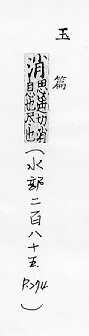 玉篇
消思遙切消
息也尽也
(水部二百八十五 P.274)